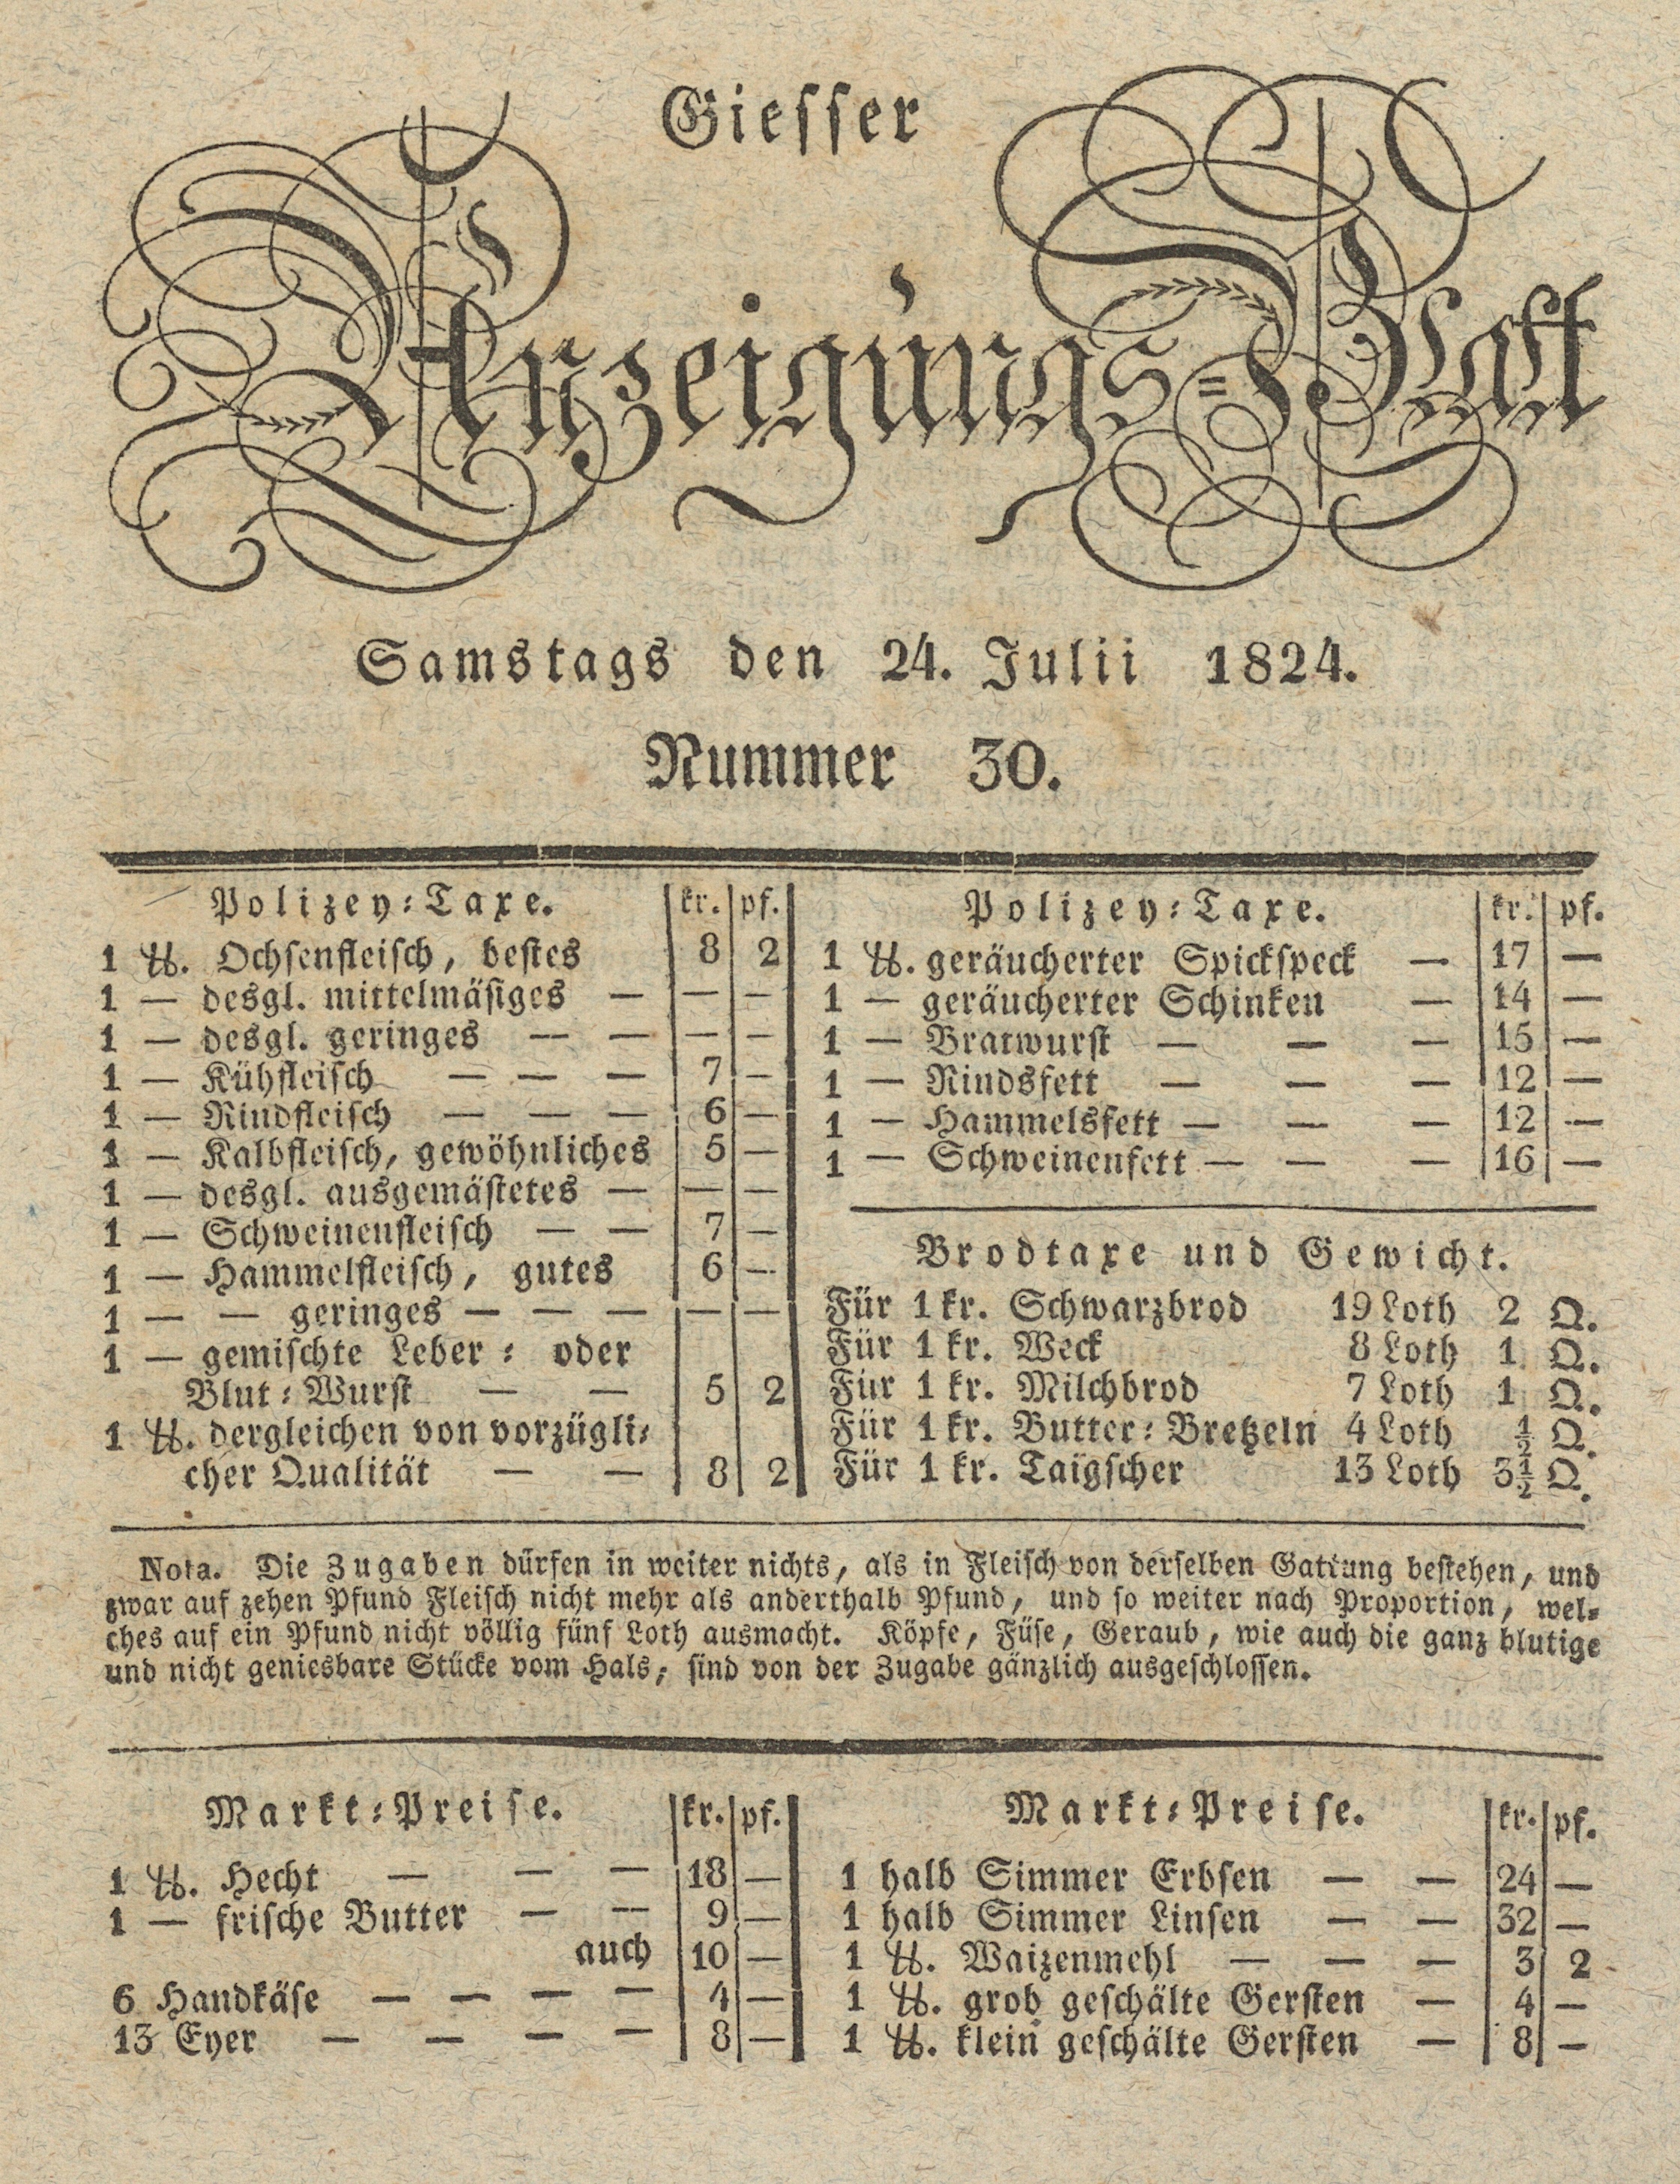 Giesser
Anzeigungs-Blatt
Samstags den 24. Julii 1824.
Nummer 30.
Polizey-Taxe. kr. pf.
1 ℔. Ochsenfleisch, bestes 8 2
1 — desgl. mittelmäsiges — — —
1 — desgl. geringes — — — —
1 — Kühfleisch — — — 7 —
1 — Rindfleisch — — — 6 —
1 — Kalbfleisch, gewöhnliches 5 —
1 — desgl. ausgemästetes — — —
1 — Schweinenfleisch — — 7 —
1 — Hammelfleisch, gutes 6 —
1 — — geringes — — — — —
1 — gemischte Leber- oder
Blut-Wurst — — 5 2
1 ℔. dergleichen von vorzügli-
cher Qualität — — 8 2
Polizey-Taxe. kr. pf.
1 ℔. geräucherter Spickspeck — 17 —
1 — geräucherter Schinken — 14 —
1 — Bratwurst — — — 15 —
1 — Rindsfett — — — 12 —
1 — Hammelsfett — — — 12 —
1 — Schweinenfett — — — 16 —
Brodtaxe und Gewicht.
Für 1 kr. Schwarzbrod 19 Loth 2 Q.
Für 1 kr. Weck 8 Loth 1 Q.
Für 1 kr. Milchbrod 7 Loth 1 Q.
Für 1 kr. Butter-Bretzeln 4 Loth ½ Q.
Für 1 kr. Taigscher 13 Loth 3½ Q.
Nota. Die Zugaben dürfen in weiter nichts, als in Fleisch von derselben Gattung bestehen, und
zwar auf zehen Pfund Fleisch nicht mehr als anderthalb Pfund, und so weiter nach Proportion, wel-
ches auf ein Pfund nicht völlig fünf Loth ausmacht. Köpfe, Füse, Geraub, wie auch die ganz blutige
und nicht geniesbare Stücke vom Hals, sind von der Zugabe gänzlich ausgeschlossen.
Markt-Preise. kr. pf.
1 ℔. Hecht — — — 18 —
1 — frische Butter — — 9 —
auch 10 —
6 Handkäse — — — — 4 —
13 Eyer — — — — 8 —
Markt-Preise. kr. pf.
1 halb Simmer Erbsen — — 24 —
1 halb Simmer Linsen — — 32 —
1 ℔. Waizenmehl — — — 3 2
1 ℔. grob geschälte Gersten — 4 —
1 ℔. klein geschälte Gersten — 8 —